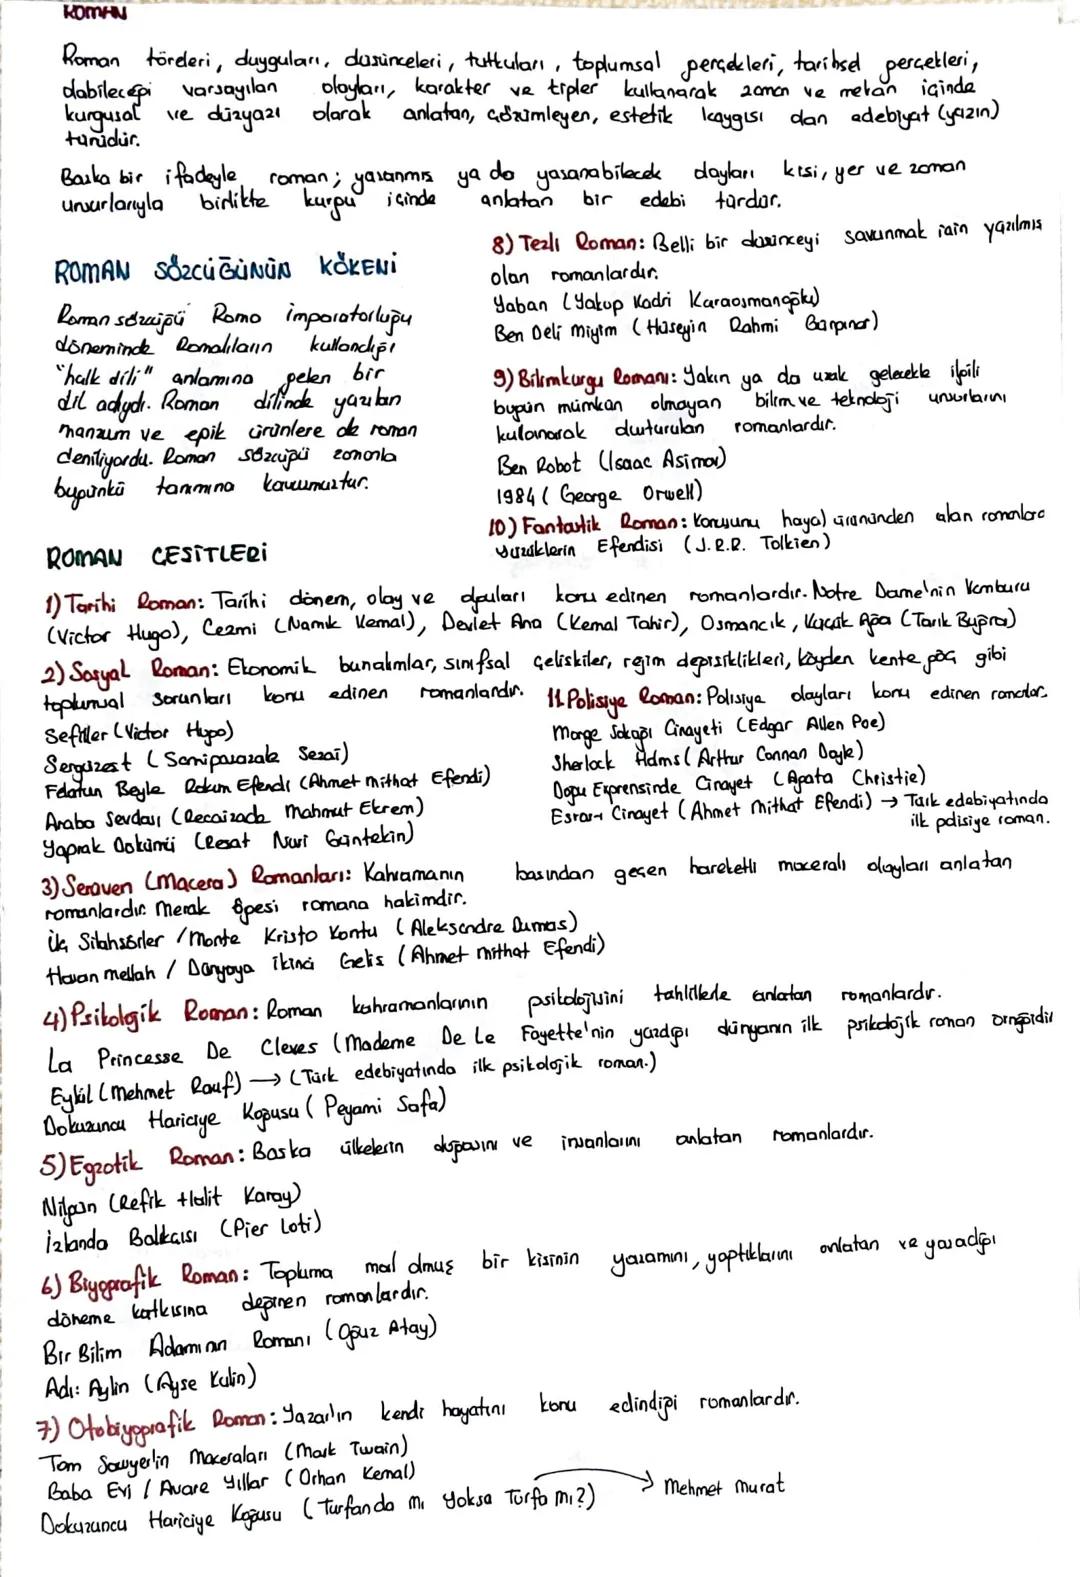 ROMAN
Roman töreleri, duyguları, düsünceleri, tutkuları, toplumsal gerçekleri, tarihsel gerçekleri,
olabileceği varsayılan olayları, karakter ve tipler kullanarak zaman ve mekan içinde
kurgusal ve düzyazı olarak anlatan, çözümleyen, estetik kaygısı olan edebiyat (yazın)
türüdür.
Baska bir ifadeyle roman; yasanmıs ya da yasanabilecek olayları kisi, yer ve zaman
unsurlarıyla birlikte kurgu içinde anlatan bir edebi türdür.
ROMAN SÖZCÜĞÜNÜN KÖKENİ
Roman sözcüğü Roma imparatorluğu
döneminde Romalıların kullandığı
"halk dili" anlamına gelen bir
dil adıydı. Roman dilinde yazılan
manzum ve epik ürünlere de roman
deniliyordu. Roman sözcüğü zamanla
bugünkü tanımına kavusmustur.
8) Tezli Roman: Belli bir düsünceyi savunmak için yazılmıs
olan romanlardır.
Yaban (Yakup Kadri Karaosmanoğlu)
Ben Deli Miyim (Hüseyin Rahmi Gürpınar)
9) Bilimkurgu Romanı: Yakın ya da uzak gelecekle ilgili
bugün mümkün olmayan bilim ve teknoloji unsurlarını
kulanarak olusturulan romanlardır.
Ben Robot (Isaac Asimov)
1984 (George Orwell)
10) Fantastik Roman: Konusunu hayal ürününden alan romanlara
Yüzüklerin Efendisi (J.R.R. Tolkien)
ROMAN CESİTLERİ
1) Tarihi Roman: Tarihi dönem, olay ve olguları konu edinen romanlardır. Notre Dame'nin Kamburu
(Victor Hugo), Cezmi (Namık Kemal), Devlet Ana (Kemal Tahir), Osmancık, Küçük Ağa (Tarık Buğra)
2) Sosyal Roman: Ekonomik bunalımlar, sınıfsal çeliskiler, rejim değisiklikleri, köyden kente göç gibi
toplumsal sorunları konu edinen romanlardır.
Sefiller (Victor Hugo)
Sergüzest (Samipasazade Sezai)
Felatun Beyle Rakım Efendi (Ahmet mithat Efendi)
Araba Sevdası (Recaizade Mahmut Ekrem)
Yaprak Dökümü (Resat Nuri Güntekin)
11. Polisiye Roman: Polisiye olayları konu edinen romanlar.
Morge Sokağı Cinayeti (Edgar Allen Poe)
Sherlock Holms (Arthur Connan Doyle)
Doğu Expresinde Cinayet (Agata Christie)
Esrar-ı Cinayet (Ahmet Mithat Efendi) → Türk edebiyatında
ilk polisiye roman.
3) Serüven (Macera) Romanları: Kahramanın basından geçen hareketli maceralı olayları anlatan
romanlardır. Merak ögesi romana hakimdir.
Üç Silahsörler / Monte Kristo Kontu (Aleksandre Dumas)
Hasan mellah / Dünyaya ikinci Gelis (Ahmet mithat Efendi)
4) Psikolojik Roman: Roman kahramanlarının psikolojisini tahlillerle anlatan romanlardır.
La Princesse De Cleves (Madame De Le Fayette'nin yazdığı dünyanın ilk psikolojik roman örneğidir
Eylül (Mehmet Rauf) → (Türk edebiyatında ilk psikolojik roman.)
Dokuzuncu Hariciye Koğusu (Peyami Safa)
5) Egzotik Roman: Baska ülkelerin doğasını ve insanlarını anlatan romanlardır.
Nilgün (Refik Halit Karay)
İzlanda Balıkcısı (Pier Loti)
6) Biyografik Roman: Topluma mal olmuş bir kisinin yasamını, yaptıklarını anlatan ve yasadığı
döneme katkısına değinen romanlardır.
Bir Bilim Adamının Romanı (Oğuz Atay)
Adı: Aylin (Ayse Kulin)
7) Otobiyografik Roman: Yazar'ın kendi hayatını konu edindiği romanlardır.
Tom Sawyer'in Maceraları (Mark Twain)
Baba Evi / Avare Yıllar (Orhan Kemal)
Dokuzuncu Hariciye Koğusu (Turfanda mı Yoksa Turfa mı?) → Mehmet Murat